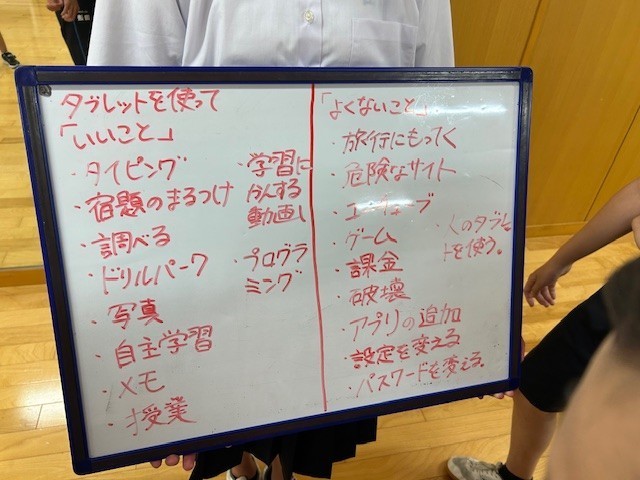 タブレットを使って
「いいこと」
・タイピング
・宿題のまるつけ
・調べる
・ドリルパーク
・写真
・自主学習
・メモ
・授業
・学習に
かんする
動画
・プログラ
ミング
「よくないこと」
・旅行にもってく
・危険なサイト
・ユーチューブ
・ゲーム
・課金
・破壊
・アプリの追加
・設定を変える
・パスワードを変える。
のタブレッ
トを使う。